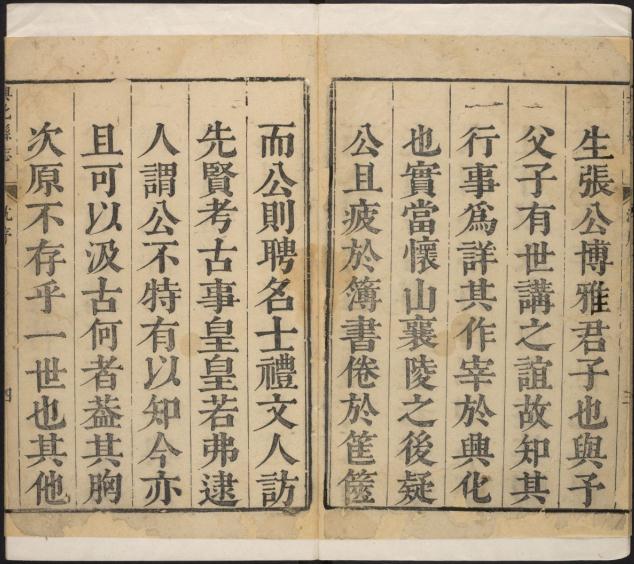 生張公博雅君子也與予
父子有世講之誼故知其
行事為詳其作宰於興化
也實當懷山襄陵之後疑
公且疲於簿書倦於筐篋
而公則聘名士禮文人訪
先賢考古事皇皇若弗逮
人謂公不特有以知今亦
且可以汲古何者葢其胸
次原不存乎一世也其他
興化縣志
序
四